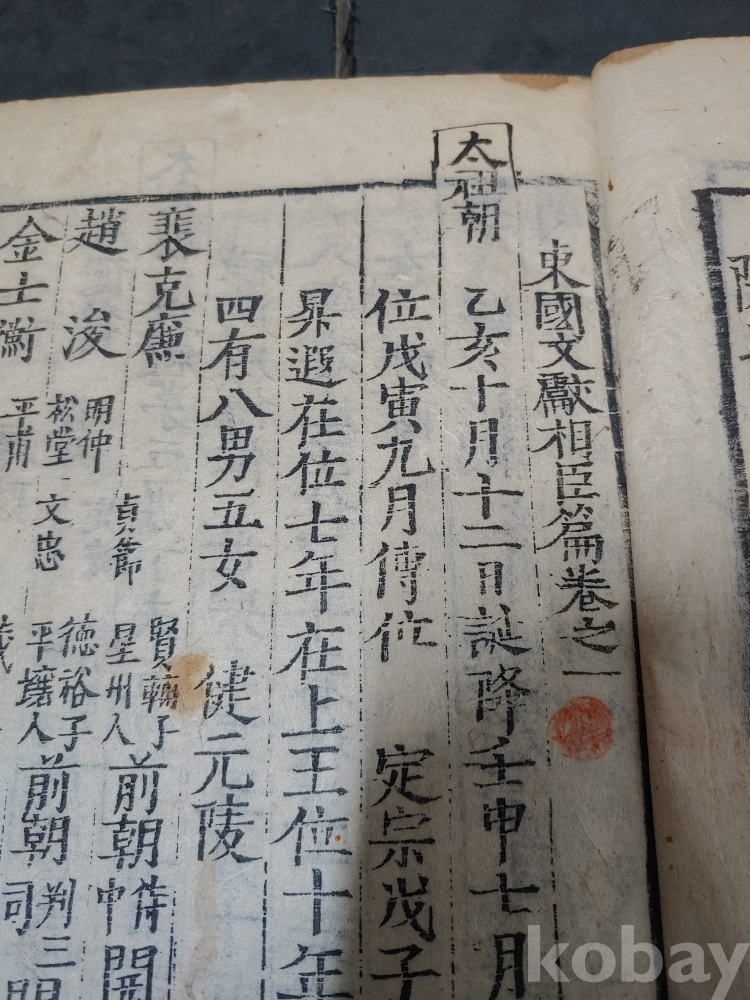 東國文獻相臣篇卷之一
太祖朝
乙亥十月十二日誕降壬申七月
位戊寅九月傳位 定宗戊子
昇遐在位七年在上王位十年
四有八男五女 健元陵
裵克廉 貞節 星州人 前朝
趙浚 明仲 松堂 文忠 平壤人 德裕子 前朝 判三
金士衡 平甫
kobay